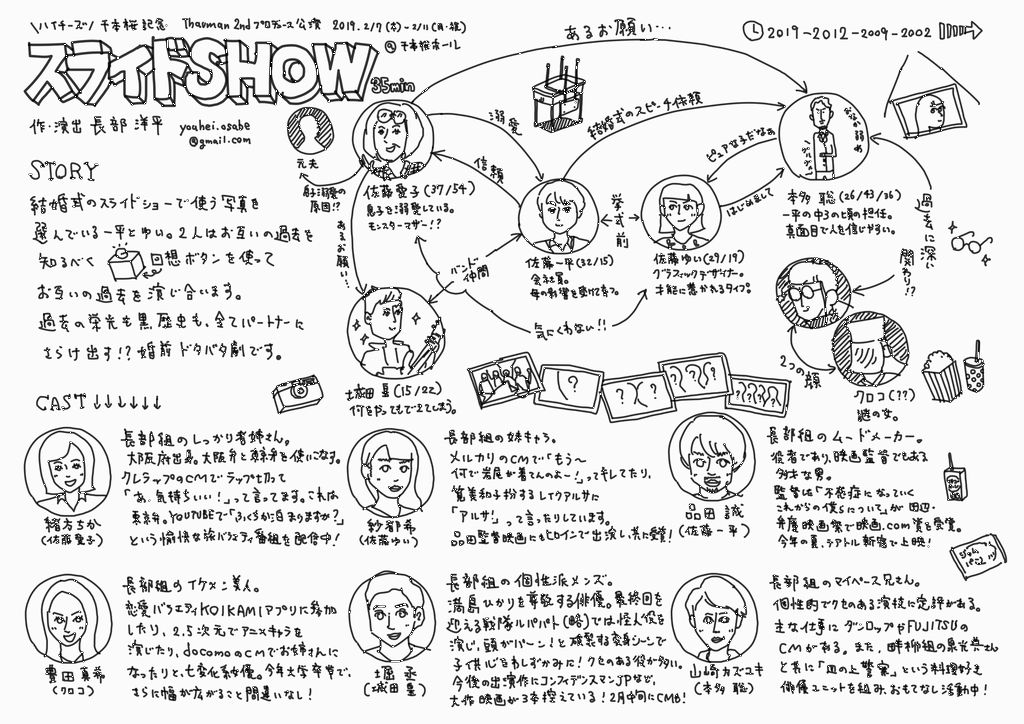 \ハイチーズ/ 千本桜記念 Thavman 2nd プロデュース公演 2019.2/7(木)-2/11(月・祝)
@千本桜ホール
スライドSHOW
35min
作・演出 長部 洋平
youhei.osabe
@gmail.com
STORY
結婚式のスライドショーで使う写真を
選んでいる一平とゆい。2人はお互いの過去を
知るべく 回想ボタンを使って
お互いの過去を演じ合います。
過去の栄光も黒歴史も、全てパートナーに
さらけ出す!?婚前ドタバタ劇です。
CAST↓↓↓↓↓↓
あるお願い…
2019-2012-2009-2002
元夫
息子溺愛の
原因!?
佐藤愛子(37/54)
息子を溺愛している。
モンスターマザー!?
溺愛
信頼
結婚式のスピーチ依頼
ピュア女子だなぁ
はじめまして
挙式前
佐藤一平(32/15)
会社員。
母の影響を受けて育つ。
佐藤ゆい(29/19)
グラフィックデザイナー。
才能に惹かれるタイプ。
本多 聡(26/43/36)
一平の中3の頃の担任。
真面目で人を信じやすい。
過去に深い
関わり!?
あるお願い…
バンド
仲間
気にくわない!!
城田 星(15/22)
何をやってもできてしまう。
2つの顔
クロコ(??)
謎の女。
緒方ちか
(佐藤愛子)
長部組のしっかり者姉さん。
大阪府出身。大阪弁と東京弁を使いこなす。
クレラップのCMでラップも切って
「あ、気持ちいい!」って言ってます。これは
東京弁。YOUTUBEで「ふくちか泊まりますか?」
という愉快な旅バラエティ番組を配信中!
紗都希
(佐藤ゆい)
長部組の妹キャラ。
メルカリのCMで「もう〜
何で岩尾が着てんのよー!」ってキレてたり、
篤美和子扮するレイクアルサに
「アルサ!」って言ったりしています。
品田監督映画にもヒロインで出演し、共に受賞!
品田 誠
(佐藤一平)
長部組のムードメーカー。
役者であり、映画監督でもある
多才な男。
監督作「不感症になっていく
これからの僕らについて」が田辺・
弁慶映画祭で映画.com賞を受賞。
今年の夏、テアトル新宿で上映!
豊田真希
(クロコ)
長部組のイケメン美人。
恋愛バラエティKOIKAMIアプリに参加
したり、2.5次元でアニメキャラを
演じたり、docomoのCMでお姉さんに
なったりと、七変化女優。今年大学卒業で、
さらに幅が広がること間違いなし!
堀 丞
(城田星)
長部組の個性派メンズ。
満島ひかりを尊敬する俳優。最終回を
迎える戦隊ルパパト(略)では、怪人役を
演じ、頭がパーン!と破裂する変身シーンで
子供心をわしずかみに!クセのある役が多い。
今後の出演作にコンフィデンスマンJPなど、
大作映画が3本控えている!2月中旬にCMも!
山崎カズユキ
(本多 聡)
長部組のマイペース兄さん。
個性的でクセのある演技に定評がある。
主な仕事にダンロップやFUJITSUの
CMがある。また、畔柳組の泉光典さん
と共に「皿の上警察」という料理好き
俳優ユニットを組み、おもてなし活動中!